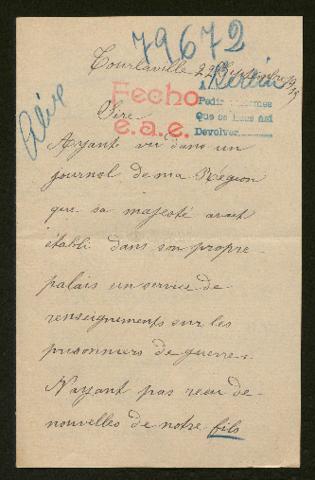 79672
Tourlaville 22 Septembre 1915
Berlin
A
Fecho
e.a.e.
Pedir informes
Que se haus así
Devolver
Sire
Ayants vu dans un
journal de ma Région
que sa majesté avait
établi dans son propre
palais un service de
renseignements sur les
prisonniers de guerre.
N'ayant pas reçu de
nouvelles de notre fils